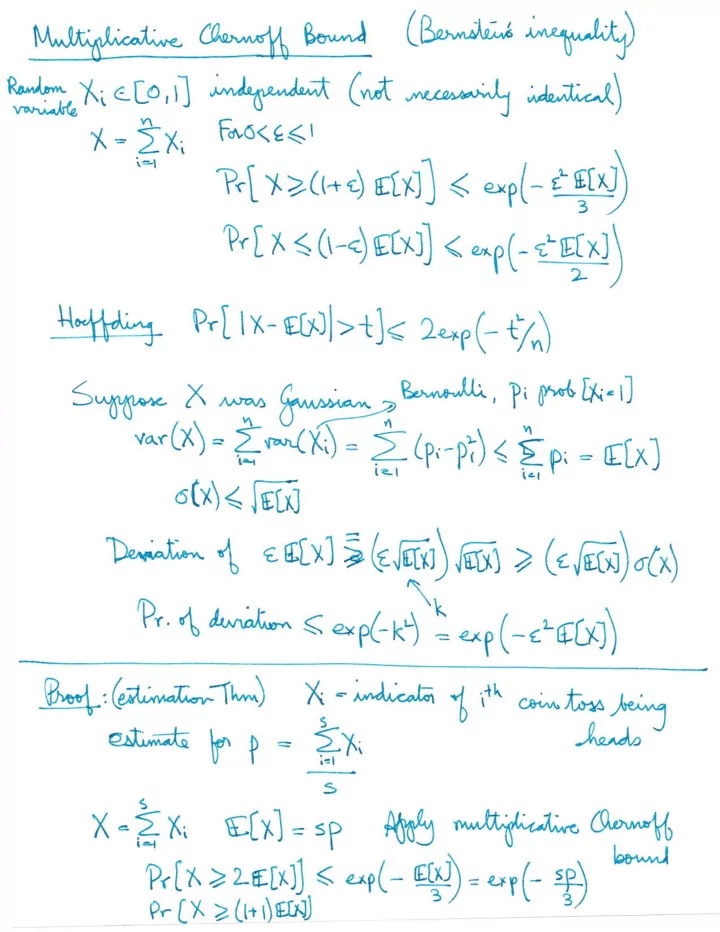 Multiplicative Chernoff Bound (Bernstein's inequality)
Random variable Xi ∈ [0,1] independent (not necessarily identical)
X = Σ_{i=1}^{n} Xi For 0<ε≤1
Pr[X ≥ (1+ε) E[X]] ≤ exp(- ε² E[X] / 3)
Pr[X ≤ (1-ε) E[X]] ≤ exp(- ε² E[X] / 2)
Hoeffding Pr[|X - E[X]| > t] ≤ 2exp(- t²/n)
Suppose X was Gaussian → Bernoulli, pi prob [Xi=1]
var(X) = Σ_{i=1}^{n} var(Xi) = Σ_{i=1}^{n} (pi - pi²) ≤ Σ_{i=1}^{n} pi = E[X]
σ(X) ≤ √E[X]
Deviation of ε E[X] = (ε√E[X]) √E[X] ≥ (ε√E[X]) σ(X)
k
Pr. of deviation ≤ exp(-k²) = exp(-ε² E[X])
Proof: (estimation Thm) Xi - indicator of ith coin toss being heads
estimate for p = Σ_{i=1}^{s} Xi / s
X = Σ_{i=1}^{s} Xi E[X] = sp Apply multiplicative Chernoff bound
Pr[X ≥ 2E[X]] ≤ exp(- E[X] / 3) = exp(- sp / 3)
Pr[X ≥ (1+1)E[X]]